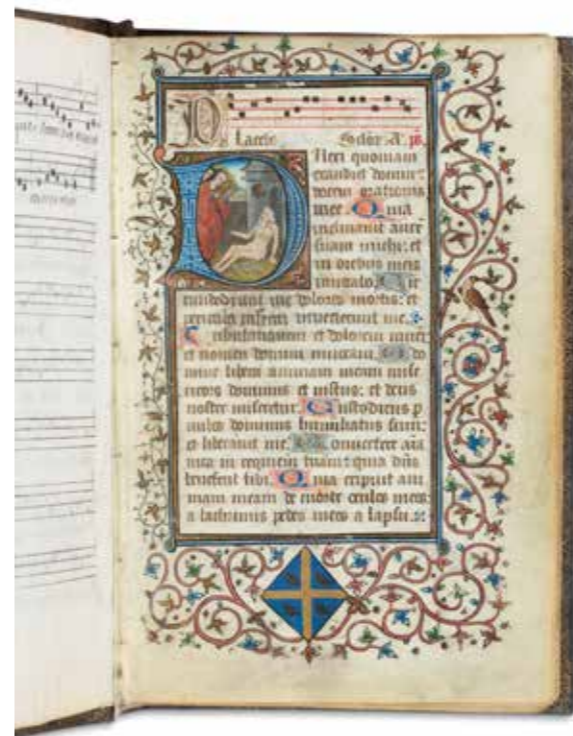 Placebo
Dileri quoniam
exaudiet dominus:
vocem orationis
mee. Quia
inclinavit aurē
suam michi: et
in diebus meis
invocabo. Cir
cundederunt me dolores mortis: et
pericula inferni invenerunt me.
Tribulationem et dolorem inveni
et nomen domini invocavi. O do
mine libera animam meam mise
ricors dominus et iustus: et deus
noster miseretur. Custodiens p
vulos dominus humiliatus sum:
et liberavit me. Convertere aīa
mea in requiem tuam: quia dn̄s
benefecit tibi. Quia eripuit ani
mam meam de morte oculos meos
a lachrimis pedes meos a lapsu.